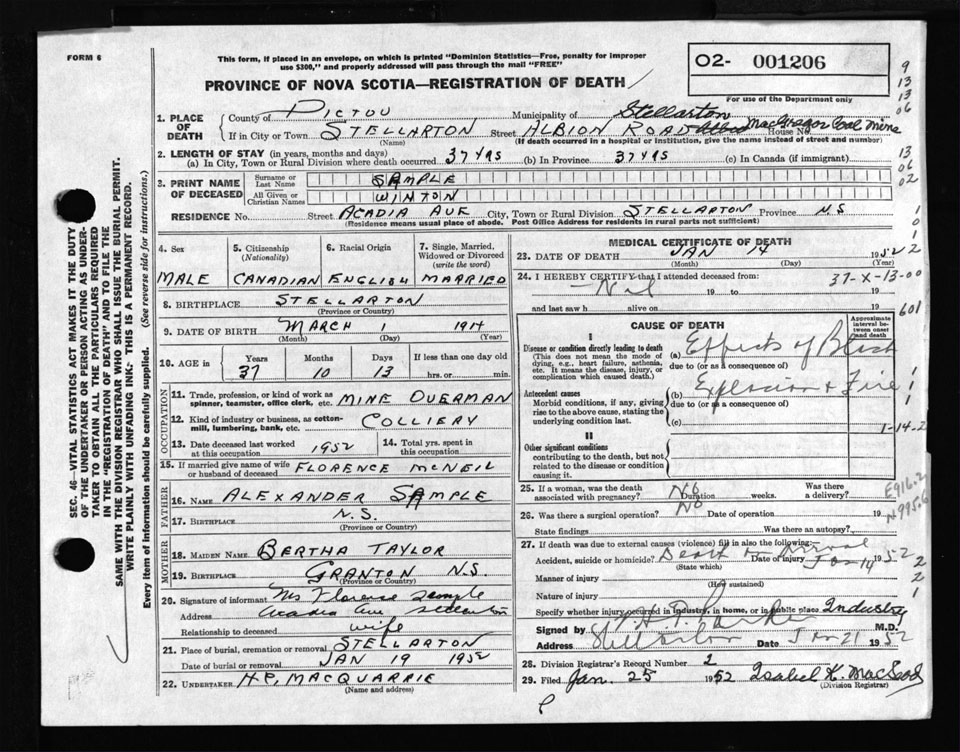 FORM 6
This form, if placed in an envelope, on which is printed "Dominion Statistics—Free, penalty for improper
use $300," and properly addressed will pass through the mail "FREE"
PROVINCE OF NOVA SCOTIA—REGISTRATION OF DEATH
O2- 001206
For use of the Department only
9
13
13
06
13
06
02
1. PLACE OF DEATH
County of PICTOU Municipality of Stellarton
If in City or Town STELLARTON Street ALBION ROAD House No. MacGregor Coal Mine
(Name) (If death occurred in a hospital or institution, give the name instead of street and number)
2. LENGTH OF STAY (in years, months and days)
(a) In City, Town or Rural Division where death occurred 37 YRS (b) In Province 37 YRS (c) In Canada (if immigrant)
3. PRINT NAME OF DECEASED
Surname or Last Name SAMPLE
All Given or Christian Names WINTON
RESIDENCE No. Street ACADIA AVE City, Town or Rural Division STELLARTON Province N.S
(Residence means usual place of abode. Post Office Address for residents in rural parts not sufficient)
4. Sex MALE
5. Citizenship (Nationality) CANADIAN
6. Racial Origin ENGLISH
7. Single, Married, Widowed or Divorced (write the word) MARRIED
8. BIRTHPLACE STELLARTON
(Province or Country)
9. DATE OF BIRTH MARCH 1 1914
(Month) (Day) (Year)
10. AGE in Years Months Days If less than one day old
37 10 13 hrs. or min.
OCCUPATION
11. Trade, profession, or kind of work as
spinner, teamster, office clerk, etc. MINE OVERMAN
12. Kind of industry or business, as cotton-
mill, lumbering, bank, etc. COLLIERY
13. Date deceased last worked
at this occupation 1952
14. Total yrs. spent in
this occupation
15. If married give name of wife
or husband of deceased FLORENCE MCNEIL
FATHER
16. NAME ALEXANDER SAMPLE
17. BIRTHPLACE N.S.
(Province or Country)
MOTHER
18. MAIDEN NAME BERTHA TAYLOR
19. BIRTHPLACE GRANTON N.S.
(Province or Country)
20. Signature of informant Mrs Florence Sample
Address Acadia Ave Stellarton
Relationship to deceased wife
21. Place of burial, cremation or removal STELLARTON
Date of burial or removal JAN 19 1952
22. UNDERTAKER H.P. MACQUARRIE
(Name and address)
MEDICAL CERTIFICATE OF DEATH
23. DATE OF DEATH JAN 14 1952
(Month) (Day) (Year)
24. I HEREBY CERTIFY that I attended deceased from: 37-X-13-00
Nil 19 to 19
and last saw h alive on 19 601
CAUSE OF DEATH
Approximate interval between onset and death
I
Disease or condition directly leading to death
(This does not mean the mode of
dying, e.g., heart failure, asthenia,
etc. It means the disease, injury, or
complication which caused death.)
(a) Effects of Blast
due to (or as a consequence of)
Antecedent causes
Morbid conditions, if any, giving
rise to the above cause, stating the
underlying condition last.
(b) Explosion & Fire
due to (or as a consequence of)
(c)
1-14-2
II
Other significant conditions
contributing to the death, but not
related to the disease or condition
causing it.
25. If a woman, was the death
associated with pregnancy? No Duration weeks. Was there a delivery?
E916-2
N995.6
26. Was there a surgical operation? No Date of operation 19
State findings Was there an autopsy?
27. If death was due to external causes (violence) fill in also the following:—
Accident, suicide or homicide? Date of injury Jan 14 1952
(State which)
Manner of injury
(How sustained)
Nature of injury
Specify whether injury occurred in industry, in home, or in public place Industry
Signed by M.D.
Address Stellarton Date Jan 21 1952
28. Division Registrar's Record Number 2
29. Filed Jan. 25 1952 Isabel K. MacLeod
(Division Registrar)
SEC. 46—VITAL STATISTICS ACT MAKES IT THE DUTY
OF THE UNDERTAKER OR PERSON ACTING AS UNDER-
TAKER TO OBTAIN ALL THE PARTICULARS REQUIRED
IN THE "REGISTRATION OF DEATH" AND TO FILE THE
SAME WITH THE DIVISION REGISTRAR WHO SHALL ISSUE THE BURIAL PERMIT.
WRITE PLAINLY WITH UNFADING INK. THIS IS A PERMANENT RECORD.
Every item of information should be carefully supplied. (See reverse side for instructions.)